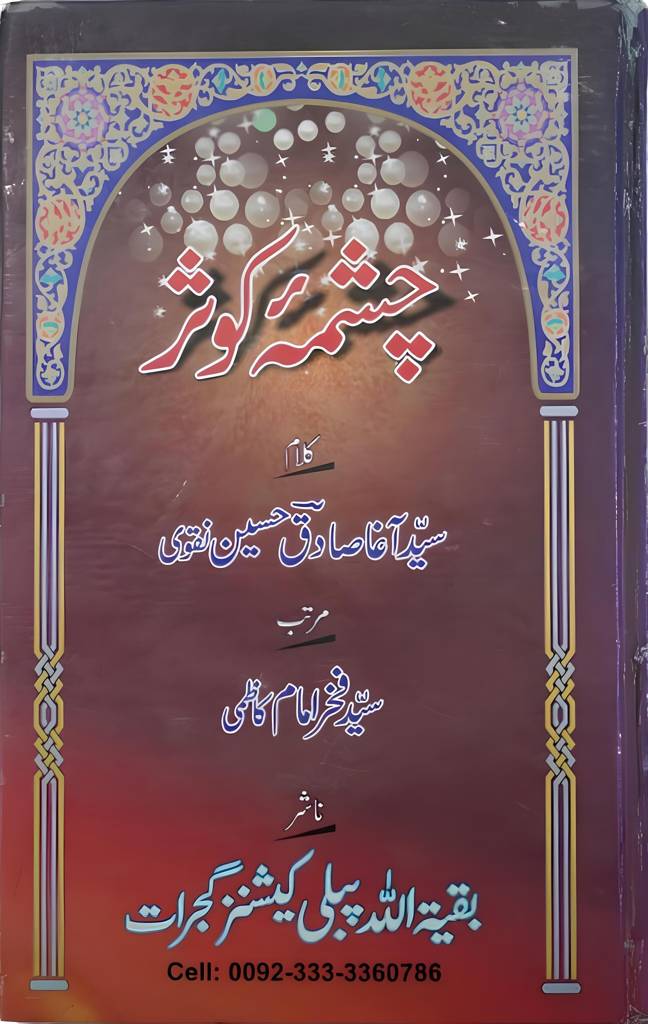 چشمۂ کوثر
کلام
سیّد آغا صادقؔ حسین نقوی
مرتب
سیّد فخر امام کاظمی
ناشر
بقیۃ اللہ پبلی کیشنز گجرات
Cell: 0092-333-3360786